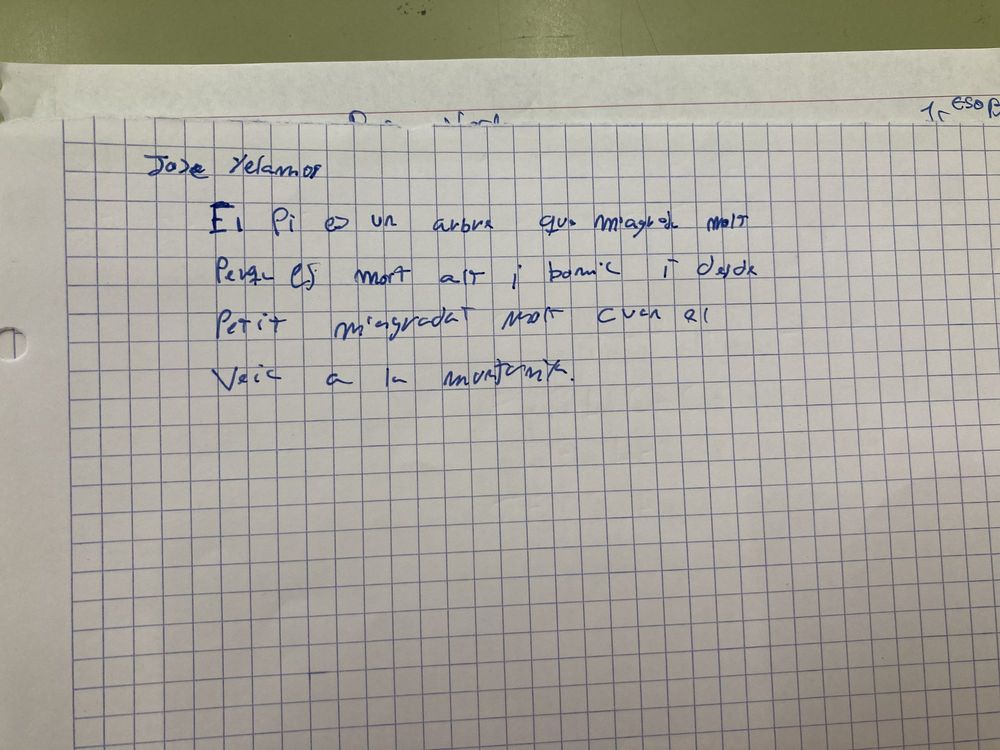 1r ESO B
Jose Yelamos
El Pi es un arbre que m'agrada molt
Perque és molt alt i bonic i desde
Petit m'agradat molt cuan el
Veic a la muntanya.